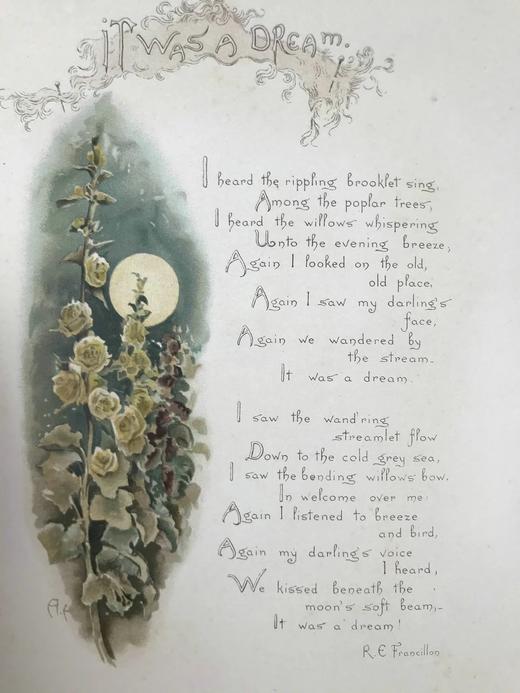 IT WAS A DREAM.
I heard the rippling brooklet sing,
Among the poplar trees,
I heard the willows whispering
Unto the evening breeze,
Again I looked on the old,
old place,
Again I saw my darling's
face,
Again we wandered by
the stream_
It was a dream.
I saw the wand'ring
streamlet flow
Down to the cold grey sea,
I saw the bending willows bow.
In welcome over me
Again I listened to breeze
and bird,
Again my darling's voice
I heard,
We kissed beneath the
moon's soft beam,_
It was a dream!
R.E Francillon